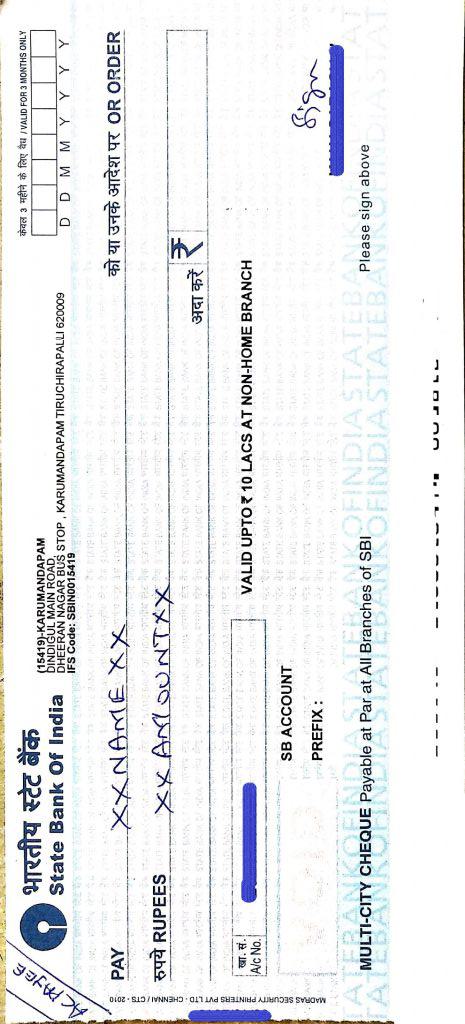 A/C PAYEE
भारतीय स्टेट बैंक
State Bank Of India
(15419)-KARUMANDAPAM
DINDIGUL MAIN ROAD,
DHEERAN NAGAR BUS STOP , KARUMANDAPAM TIRUCHIRAPALLI 620009
IFS Code: SBIN0015419
केवल 3 महीने के लिए वैध / VALID FOR 3 MONTHS ONLY
D D M M Y Y Y Y
PAY XX NAME XX को या उनके आदेश पर OR ORDER
रुपये RUPEES XX AMOUNT XX
अदा करें ₹
खा. सं.
A/c No.
VALID UPTO ₹ 10 LACS AT NON-HOME BRANCH
SB ACCOUNT
PREFIX :
MULTI-CITY CHEQUE Payable at Par at All Branches of SBI
Please sign above
MADRAS SECURITY PRINTERS PVT LTD - CHENNAI / CTS - 2010
STATE BANK OF INDIA STATE BANK OF INDIA STATE